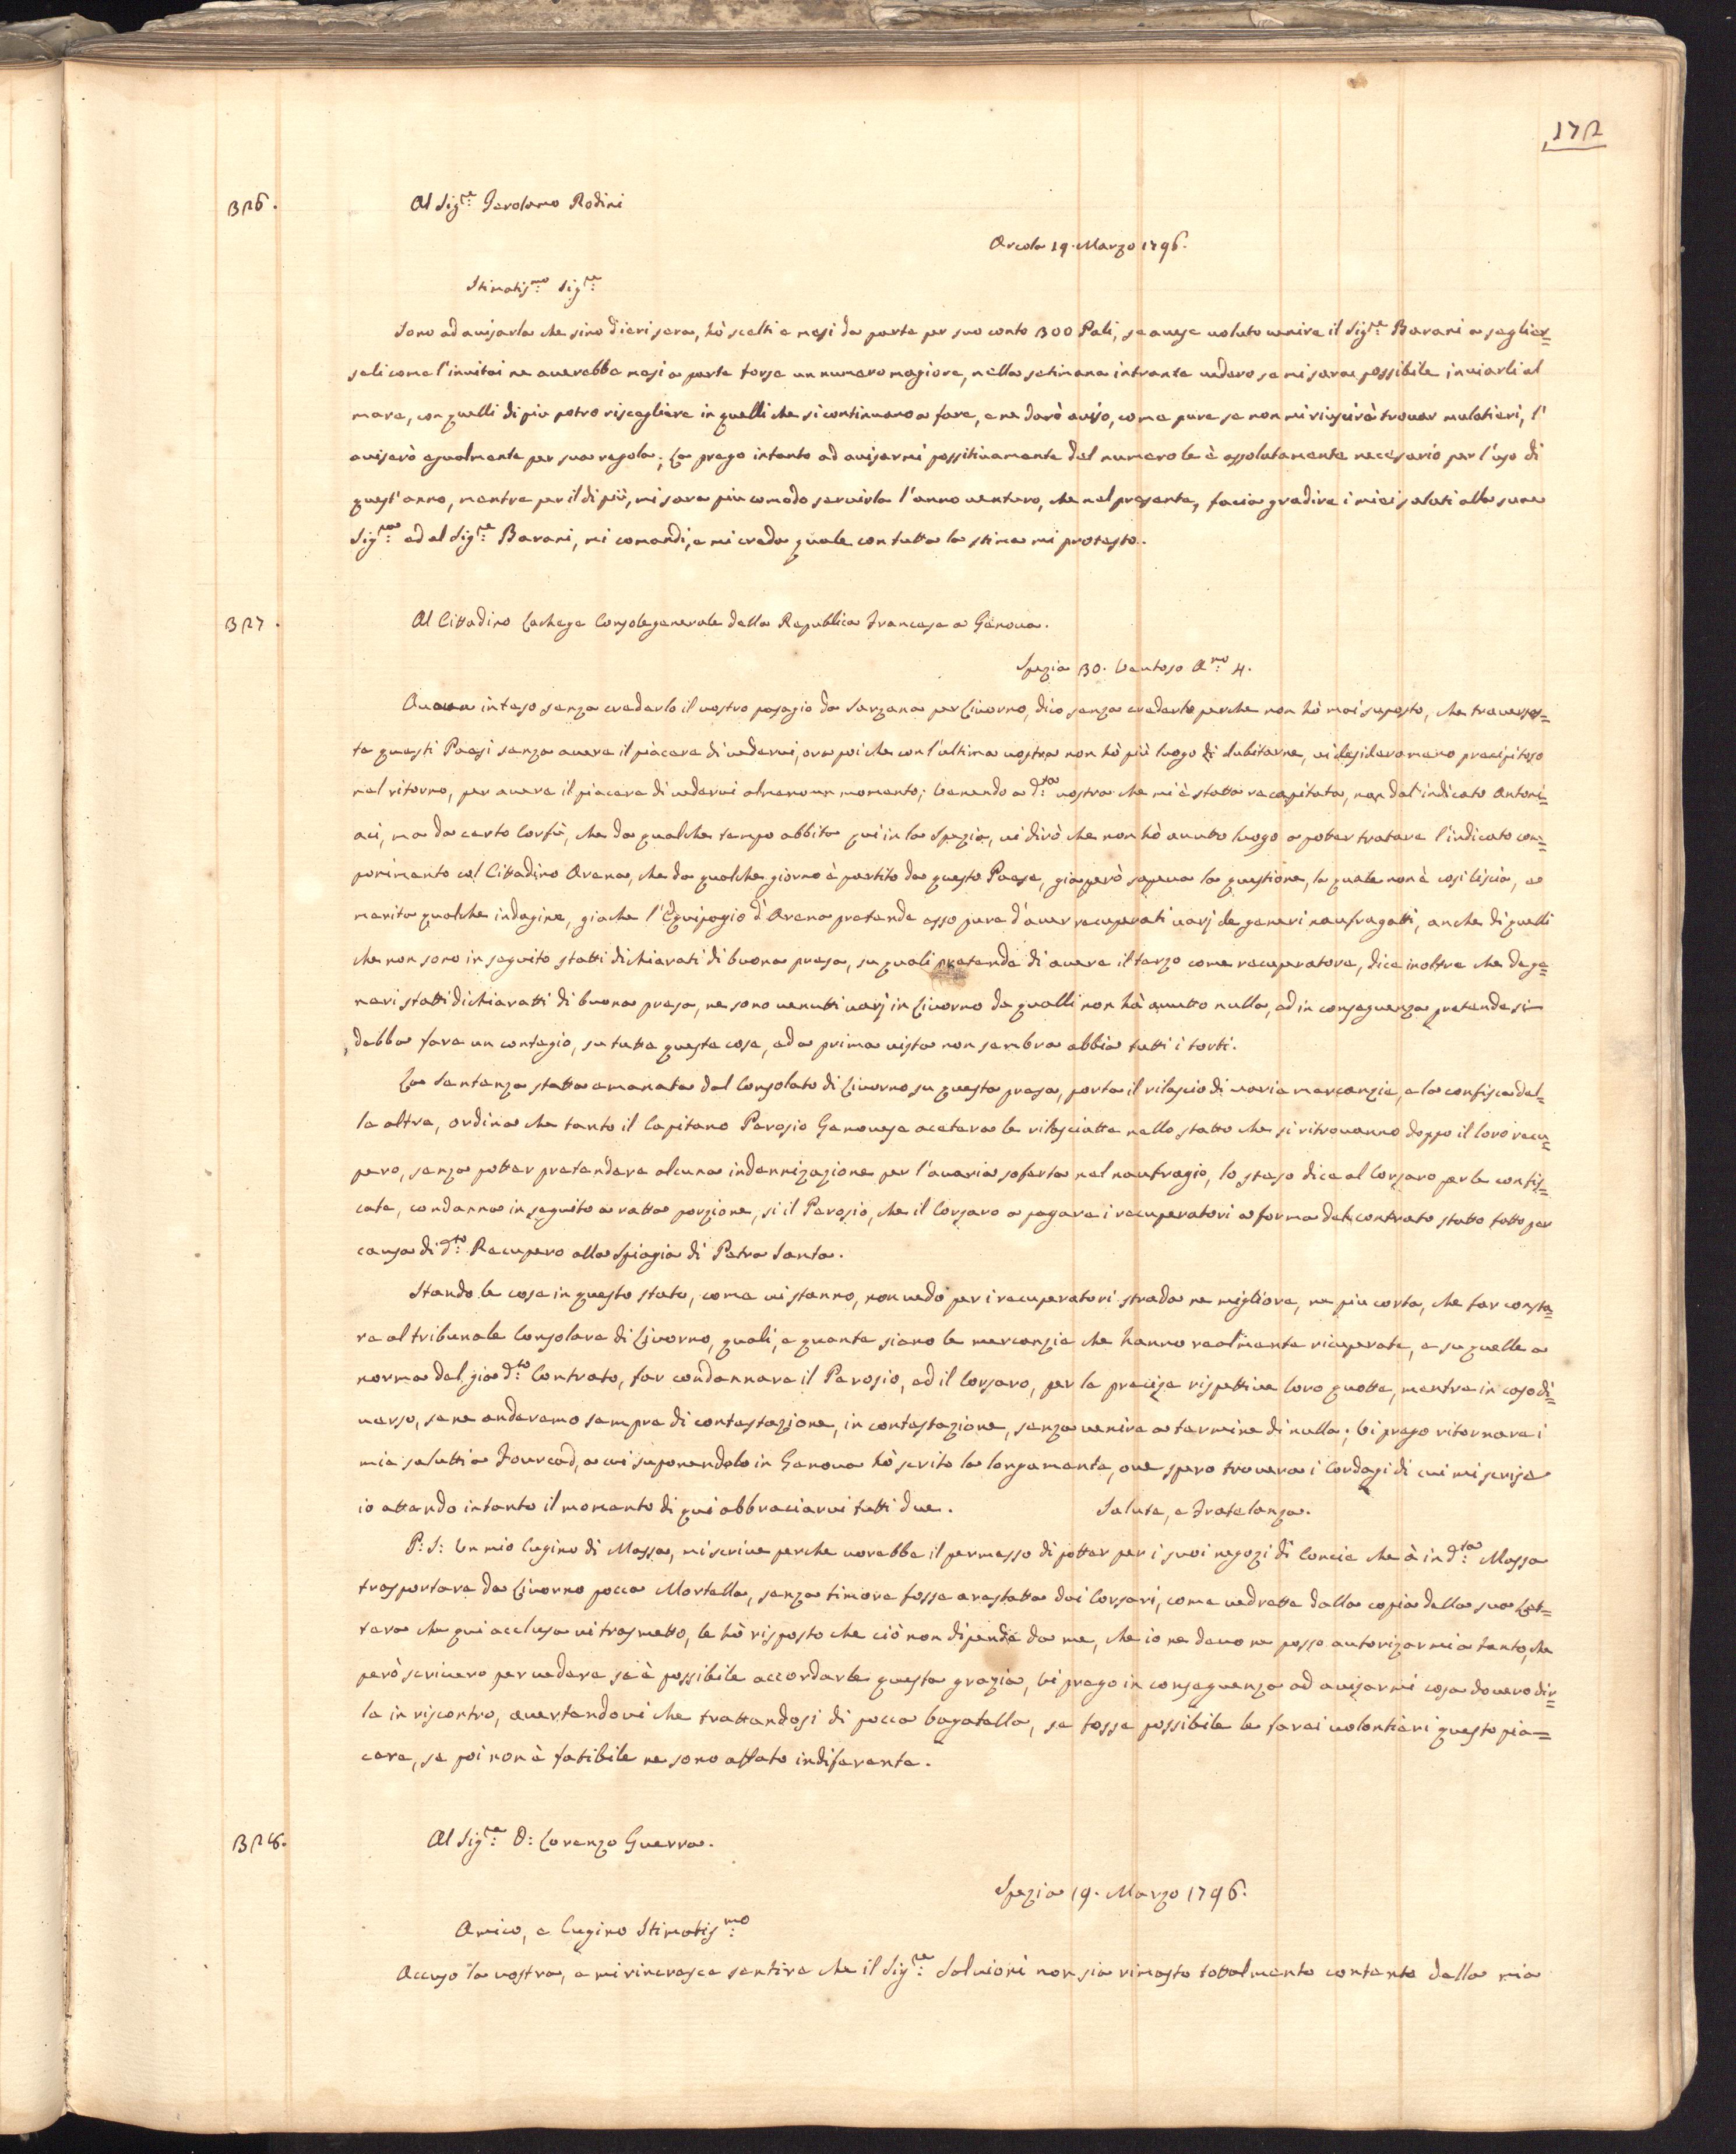 172
326.
Al Sig:re Gerolamo Rodini
Arcola 19. Marzo 1796.
Stimatis:mo Sig:re
Sono ad avisarla che sino d'ieri sera, hò scelti e mesi da parte per suo conto 300 Pali, se avese voluto venire il Sig:re Barani a seglier=
seli come l'invitai ne averebbe mesi a parte forse un numero magiore, nella setimana intrante vedero se mi sara possibile inviarli al
mare, con quelli di piu potro riscegliere in quelli che si continuano a fare, e ne darò aviso, come pure se non mi riuscirà trovar mulatieri, l'
aviserò egualmente per sua regola; La prego intanto ad avisarmi possitivamente del numero le è assolutamente necesario per l'uso di
quest'anno, mentre per il di più, mi sara piu comodo servirla l'anno venturo, che nel presente, facia gradire i miei saluti alla sua
Sig:ra ed al Sig:re Barani, mi comandi, e mi creda quale con tutta la stima mi protesto.
327.
Al Cittadino Lachege Console generale della Republica Francese a Genova.
Spezia 30. Ventoso A:no 4.
Aveva inteso senza crederlo il vostro pasagio da Sarzana per Livorno, dico senza crederlo perche non hò mai suposto, che traversas=
te questi Paesi senza avere il piacere di vedervi, ora poi che con l'ultima vostra non hò più luogo di dubitarne, vi desidero meno precipitoso
nel ritorno, per avere il piacere di vedervi almeno un momento; Venendo a d:ta vostra che mi è statta recapitata, non dal'indicato Antoni=
aci, ma da certo Corfù, che da qualche tempo abbita qui in la Spezia, vi dirò che non hò avuto luogo a poter tratare l'indicato com=
ponimento col Cittadino Arena, che da qualche giorno è partito da questo Paese, gia però sapeva la questione, la quale non è cosi liscia, e
merita qualche indagine, giache l'Equipagio d'Arena pretende esso pure d'aver recuperati varj de generi naufragatti, anche di quelli
che non sono in seguito statti dichiarati di buona presa, su quali pretende di avere il terzo come recuperatore, dice inoltre che de ge=
neri statti dichiaratti di buona presa, ne sono venutti varj in Livorno de qualli non hà avutto nulla, ed in conseguenza pretende si
debba fare un conteglio, su tutte queste cose, ed a prima vista non sembra abbia tutti i torti.
La Sentenza statta emanata dal Consolato di Livorno su questa presa, porta il rilascio di varie mercanzie, e la confisca del=
le altre, ordina che tanto il Capitano Perosio Genovese acetera le rilasciatte nello statto che si ritrovanno doppo il loro recu=
pero, senza potter pretendere alcuna indennizazione per l'avaria soferta nel naufragio, lo steso dice al Corsaro per le confis=
cate, condanna in seguito a ratta porzione, si il Perosio, che il Corsaro a pagare i recuperatori a forma del contrato statto fatto per
causa di d:to Recupero alla Spiagia di Petra Santa.
Stando le cose in questo stato, come vi stanno, non vedo per i recuperatori strada ne migliore, ne piu corta, che far consta=
re al tribunale Consolare di Livorno, quali, e quante siano le mercanzie che hanno realmente ricuperate, e su quelle a
norma del gia d:to Contrato, far condannare il Perosio, ed il Corsaro, per la precise rispettive loro quotte, mentre in caso di=
verso, se ne anderemo sempre di contestazione, in contestazione, senza venire a termine di nulla; Vi prego ritornare i
mie salutti a Fourcad, a cui suponendolo in Genova hò scrito la longamente, ove spero trovera i Cordagi di cui mi scrise
io attendo intanto il momento di qui abbraciarvi tutti due. Salute, e Fratelanza.
P: S: Un mio Cugino di Massa, mi scrive perche vorebbe il permesso di potter per i suoi negozi di Concie che à in d:ta Massa
trasportare da Livorno pocca Mortella, senza timore fosse arestatta dai Corsari, come vedrette dalla copia della sua Let=
tera che qui acclusa vi trasmetto, le hò risposto che ciò non dipende da me, che io ne devo ne posso autorizarmi a tanto, che
però scrivero per vedere se è possibile accordarle questa grazia, Vi prego in conseguenza ad avisarmi cosa dovero dir=
le in riscontro, avertendovi che trattandosi di pocca bagatella, se fosse possibile le farei volontieri questo pia=
cere, se poi non è fatibile ne sono affato indiferente.
328.
Al Sig:re D: Lorenzo Guerra.
Spezia 19. Marzo 1796.
Amico, e Cugino Stimatis:mo
Accuso la vostra, e mi rincresce sentire che il Sig:re Salvioni non sia rimasto tottalmente contento della mia